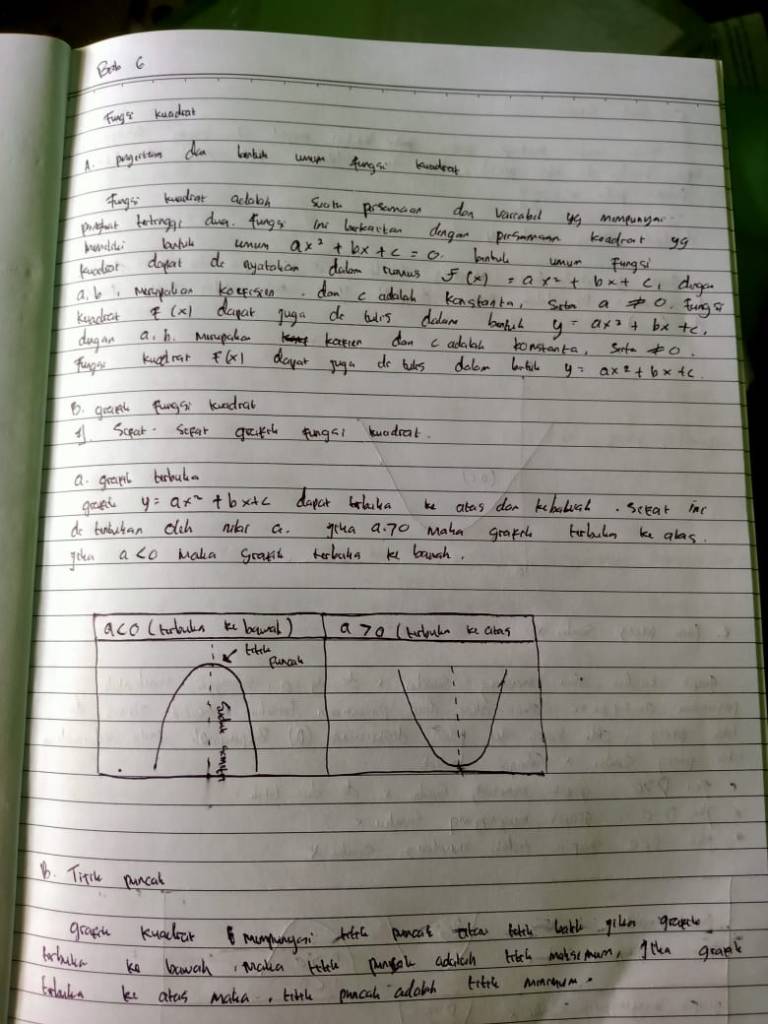 Bab 6
Fungsi kuadrat
A. pengertian dan bentuk umum fungsi kuadrat
Fungsi kuadrat adalah suatu persamaan dan variabel yg mempunyai
pangkat tertinggi dua. Fungsi ini berkaitan dengan persamaan kuadrat yg
memiliki bentuk umum ax² + bx + c = 0. bentuk umum fungsi
kuadrat dapat di nyatakan dalam rumus F(x) = ax² + bx + c, dengan
a, b, merupakan koefisien. dan c adalah konstanta, serta a ≠ 0. Fungsi
kuadrat F(x) dapat juga di tulis dalam bentuk y = ax² + bx + c,
dengan a. b. merupakan dan c adalah konstanta, serta ≠ 0.
Fungsi kuadrat F(x) dapat juga di tulis dalam bentuk y = ax² + bx + c.
B. grafik fungsi kuadrat
1). Sifat-sifat grafik fungsi kuadrat.
a. grafik terbuka
grafik y = ax² + bx + c dapat terbuka ke atas dan kebawah. Sifat ini
di tentukan oleh nilai a. jika a > 0 maka grafik terbuka ke atas.
jika a < 0 maka grafik terbuka ke bawah.
a < 0 (terbuka ke bawah)
a > 0 (terbuka ke atas
titik
puncak
simitri
B. Titik puncak
grafik kuadrat mempunyai titik puncak atau titik balik jika grafik
terbuka ke bawah, maka titik puncak adalah titik maksimum, jika grafik
terbuka ke atas maka, titik puncak adalah titik minimum.